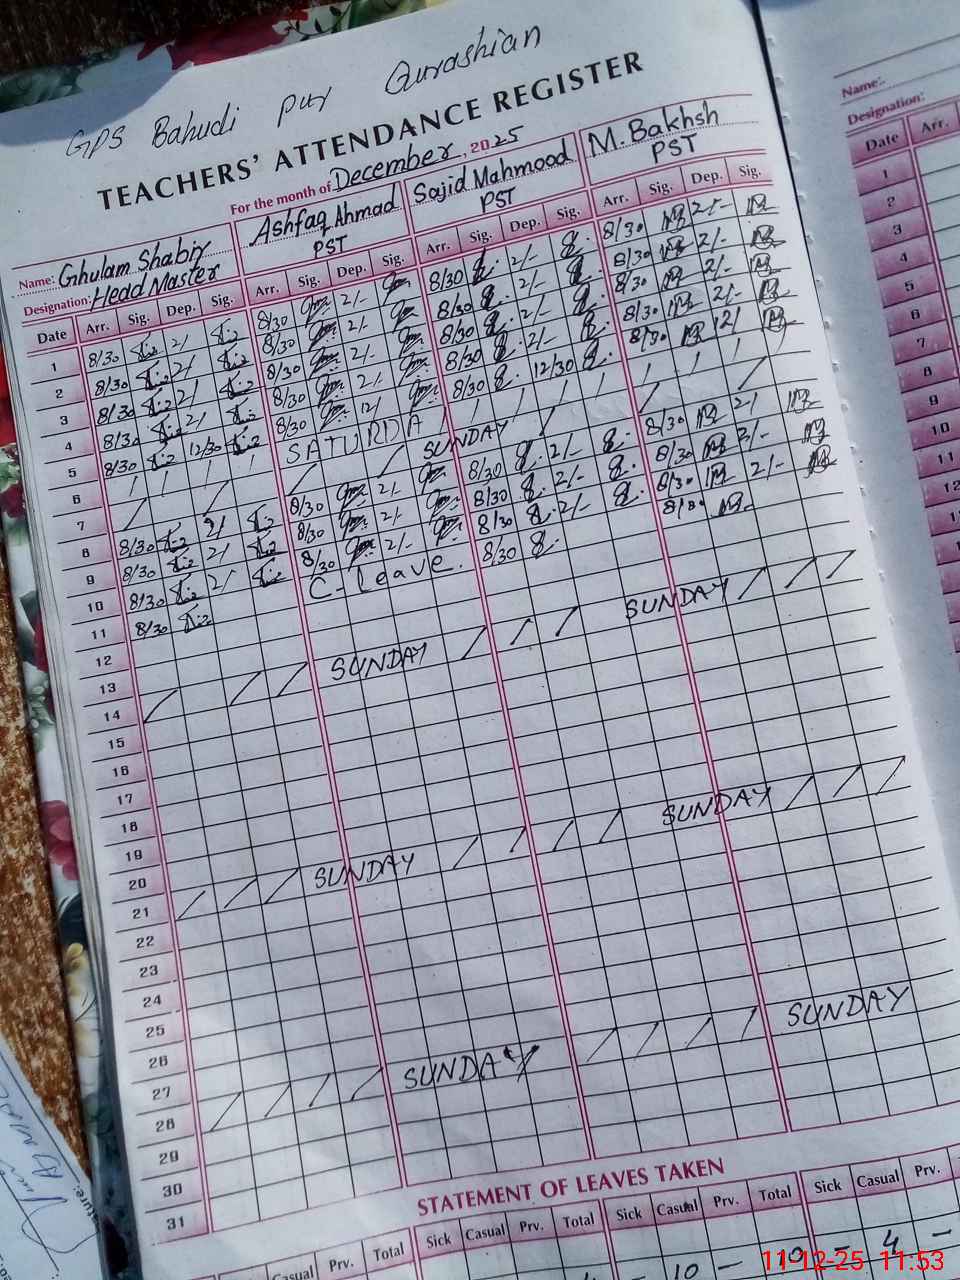 GPS Bahudi pur Qurashian
TEACHERS' ATTENDANCE REGISTER
For the month of December, 2025
Name: Ghulam Shabir Ashfaq Ahmad Sajid Mahmood M. Bakhsh
Designation: Head Master PST PST PST
Date Arr. Sig. Dep. Sig. Arr. Sig. Dep. Sig. Arr. Sig. Dep. Sig. Arr. Sig. Dep. Sig.
1 8/30 2/ 8/30 2/- 8/30 2/- 8/30 2/-
2 8/30 2/ 8/30 2/- 8/30 2/- 8/30 2/-
3 8/30 2/ 8/30 2/- 8/30 2/- 8/30 2/-
4 8/30 2/ 8/30 2/- 8/30 2/- 8/30 2/-
5 8/30 12/30 8/30 12/ 8/30 12/30 8/30 12/
6 SATURDA
7 SUNDAY
8 8/30 2/ 8/30 2/- 8/30 2/- 8/30 2/
9 8/30 2/ 8/30 2/- 8/30 2/- 8/30 2/-
10 8/30 2/ 8/30 2/- 8/30 2/- 8/30 2/-
11 8/30 C-leave. 8/30 8/30
12
13
14 SUNDAY SUNDAY
15
16
17
18
19
20
21 SUNDAY SUNDAY
22
23
24
25
26
27
28 SUNDAY SUNDAY
29
30
31
STATEMENT OF LEAVES TAKEN
Casual Prv. Total Sick Casual Prv. Total Sick Casual Prv. Total Sick Casual Prv.
10 - 10 - 4 -
Name:
Designation:
Date Arr.
1
2
3
4
5
6
7
8
9
10
11
12
11-12-25 11:53